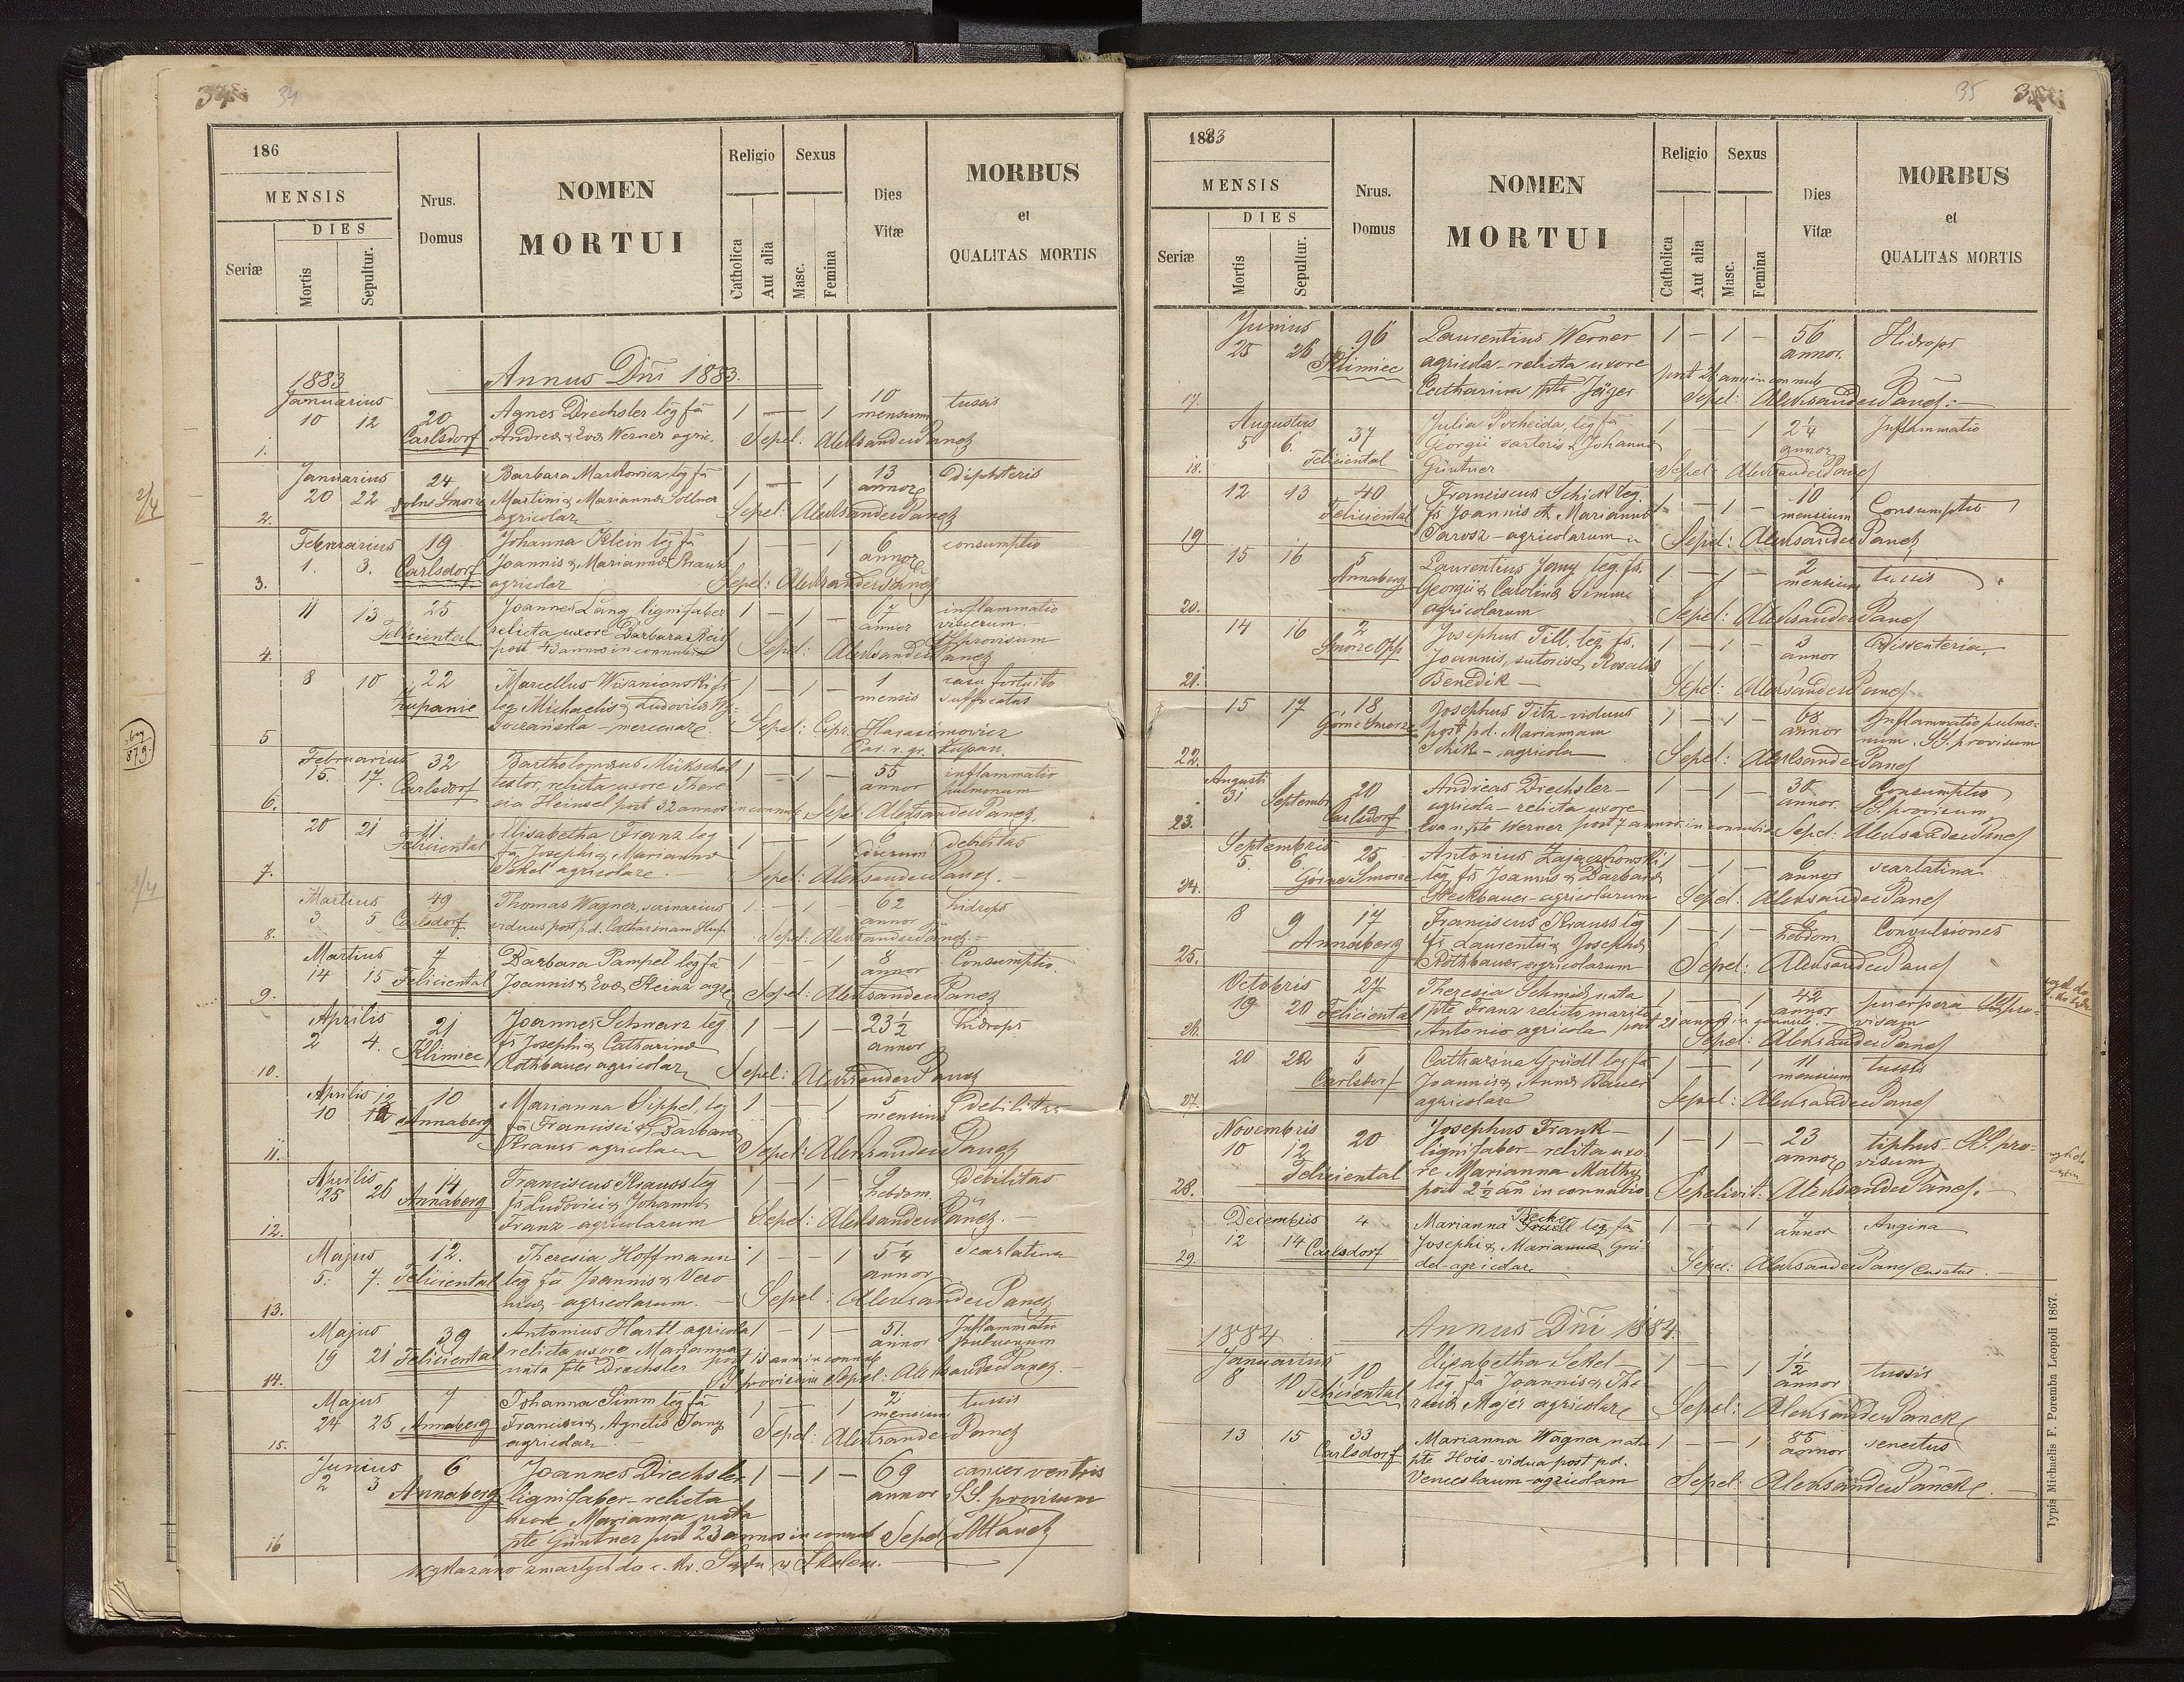 34
186
MENSIS
DIES
Seriæ
Mortis
Sepultur.
Nrus.
Domus
NOMEN
MORTUI
Religio
Catholica
Aut alia
Sexus
Masc.
Femina
Dies
Vitæ
MORBUS
et
QUALITAS MORTIS
1883
Annus Dni 1883.
Januarius
10 12 20 Agnes Drechsler leg fa 1 — — 1 10 mensium tussis
1. Carlsdorf Andreæ & Evæ Werner agric. Sepel: Aleksander Panek
Januarius 24 Barbara Markowicz leg fa 1 — — 1 13 annor Diphteris
20 22 Dolne Smorze Martini & Mariannæ Sollner
2. agricolar Sepel: Aleksander Panek
Februarius 19 Johanna Klein leg fa 1 — — 1 6 annor consumptio
1. 3. Carlsdorf Joannis & Mariannæ Kraus
3. agricolar Sepel: Aleksander Panek
11 13 25 Joannes Lang lignifaber 1 — 1 — 67 annor inflammatio viscerum.
Feliciental relicta uxore Barbara Reis SS provisum
4. post 43 annos in connubio Sepel: Aleksander Panek
8 10 22 Marcellus Wisznionski fs 1 1 — 1 mensis casu fortuito suffocatus
Zupanie leg Michaelis & Ludovicæ Wy-
5 soczańska - mercenar. Sepel: Cipr. Harasimovicz
Par. r. gr. Zupan.
Februarius 32 Bartholomæus Mükschel 1 — 1 — 55 annor inflammatio pulmonum
15. 17. Carlsdorf textor, relicta uxore There-
6. sia Heinsel post 32 annos in connub Sepel: Aleksander Panek.
20 21 11 Elisabetha Franz leg 1 — — 1 6 dierum debilitas
Feliciental fa Josephi & Mariannæ
7. Sekel agricolare. Sepel: Aleksander Panek.
Martius 49 Thomas Wagner, 1 — 1 — 62 annor hidrops
3 5 Carlsdorf viduus post p.d. Catharinam Huf.
8. Sepel: Aleksander Panek.
Martius 7 Barbara Pampel leg fa 1 — — 1 8 annor Consumptio.
14 15 Feliciental Joannis & Evæ Keinz agr.
9. Sepel: Aleksander Panek
Aprilis 21 Joannes Schwarz leg 1 — 1 — 23 ½ annor hidrops
2 4. Klimiec fs Josephi & Catharinæ
10. Rothbauer agricolar Sepel: Aleksander Panek
Aprilis 10 Marianna Sippel, leg 1 — — 1 5 mensium Debilitas
10 12 Annaberg fa Francisci & Barbaræ
11. Kraus agricolar Sepel: Aleksander Panek
Aprilis 14 Franciscus Krauss leg 1 — 1 — 9 hebdom. Debilitas
25 26 Annaberg fs Ludovici & Johannæ
12. Franz - agricolarum Sepel: Aleksander Panek.
Majus 12. Theresia Hoffmann 1 — — 1 5 ¼ annor Scarlatina
5. 7. Feliciental leg fa Joannis & Vero-
13. nicæ - agricolarum. — Sepel: Aleksander Panek
Majus 39 Antonius Hartl agricola 1 — 1 — 51. annor Inflammatio pulmonum
19 21 Feliciental relicta uxore Marianna
14. nata pte Drechsler post 15 ann in connub SS provisum Sepel: Aleksander Panek. —
Majus 7 Johanna Simm leg fa 1 — — 1 2 mensium tussis
24 25 Annaberg Francisci & Agnetis Jany
15. agricolar. Sepel: Aleksander Panek
Junius 6 Joannes Drechsler 1 — 1 — 69 annor cancer ventris
2 3 Annaberg lignifaber - relicta SS. provisum
uxore Marianna nata
16 pte Güntner post 23 annos in connub Sepel: APanek
wykazano zmarłych do c. kr. Sądu w Skolem.
35
1883
MENSIS
DIES
Seriæ
Mortis
Sepultur.
Nrus.
Domus
NOMEN
MORTUI
Religio
Catholica
Aut alia
Sexus
Masc.
Femina
Dies
Vitæ
MORBUS
et
QUALITAS MORTIS
Junius 96 Laurentius Werner 1 — 1 — 56 annor. Hidrops
25 26 Klimiec agricola - relicta uxore post ann in connub
17. Catharina pte Jäger Sepel: Aleksander Panek. —
Augustus 37 Julia Porheida, leg fa 1 — — 1 2 ¼ annor Inflammatio
5 6. Feliciental Georgii sartoris & Johannæ
18. Güntner Sepel: Aleksander Panek
12 13 40 Franciscus Schick leg. 1 — 1 — 10 mensium Consumptio
Feliciental fs Joannis et Mariannæ
19 Parosz - agricolarum Sepel: Aleksander Panek
15 16 5 Laurentius Jany leg. fs. 1 — 1 — 2 mensium tussis
Annaberg Georgii & Carolinæ Simm
20. agricolarum Sepel: Aleksander Panek
14 16 2 Josephus Till. leg. fs. 1 — 1 — 3 annor Dissenteria.
Smorze Opp Joannis, sutoris & Rosaliæ
21. Benedik — Sepel: Aleksander Panek
15 17 18 Josephus Titz - viduus 1 — 1 — 68 annor Inflammatio pulmo-
Górne Smorze post pd. Mariannam num. SS. provisum
22. Schik - agricola Sepel: Aleksander Panek
Augusti 20 Andreas Drechsler — 1 — 1 — 38 annor. Consumptio
31 Septembr Carlsdorf agricola - relicta uxore SS. provisum
23. Eva n. pte Werner post 7 annor. in connubio Sepel. Aleksander Panek
Septembris 25 Antonius Zajaczkowski 1 — 1 — 6 annor scarlatina
5. 6 Górne Smorze leg fs Joannis & Barbaræ
24. Steckbauer - agricolarum Sepel: Aleksander Panek
8 9 17 Franciscus Krauss leg 1 — 1 — 6 hebdom Convulsiones
Annaberg fs Laurentii & Josephæ
25. Rothbauer agricolarum Sepel: Aleksander Panek
Octobris 27 Theresia Schmidt nata 1 — — 1 42 annor puerpera SS pro-
19 20 Feliciental pte Franz relicto marito visam
26. Antonio agricola post 21 ann in connub. Sepel: Aleksander Panek
20 22 5 Catharina Gridl leg fa 1 — — 1 11 mensium tussis
Carlsdorf Joannis & Annæ Bauer
27. agricolare Sepel: Aleksander Panek
Novembris 20 Josephus Frank — 1 — 1 — 23 annor tiphus SS. pro-
10 12 Feliciental lignifaber - relicta uxo- visum
re Marianna Mathy
28. post 2 ½ an in connubio Sepelivit: Aleksander Panek. —
Decembris 4 Marianna Becker leg fa 1 — 1 7 annor Angina
12 14 Carlsdorf Josephi & Mariannæ Gri-
29. del - agricolar Sepel: Aleksander Panek Curatus. —
1884 Annus Dni 1884.
Januarius 10 Elisabetha Sekel — 1 — — 1 1 ½ annor tussis
8 10 Feliciental leg fa Joannis & The-
resiæ Majer agricolare Sepel: Aleksander Panek
13 15 33 Marianna Wagner nata 1 — — 1 85 annor senectus
Carlsdorf pte Hois - vidua post p.d.
Venceslaum - agricolam Sepel: Aleksander Panek. —
Typis Michaelis F. Poremba Leopoli 1867.